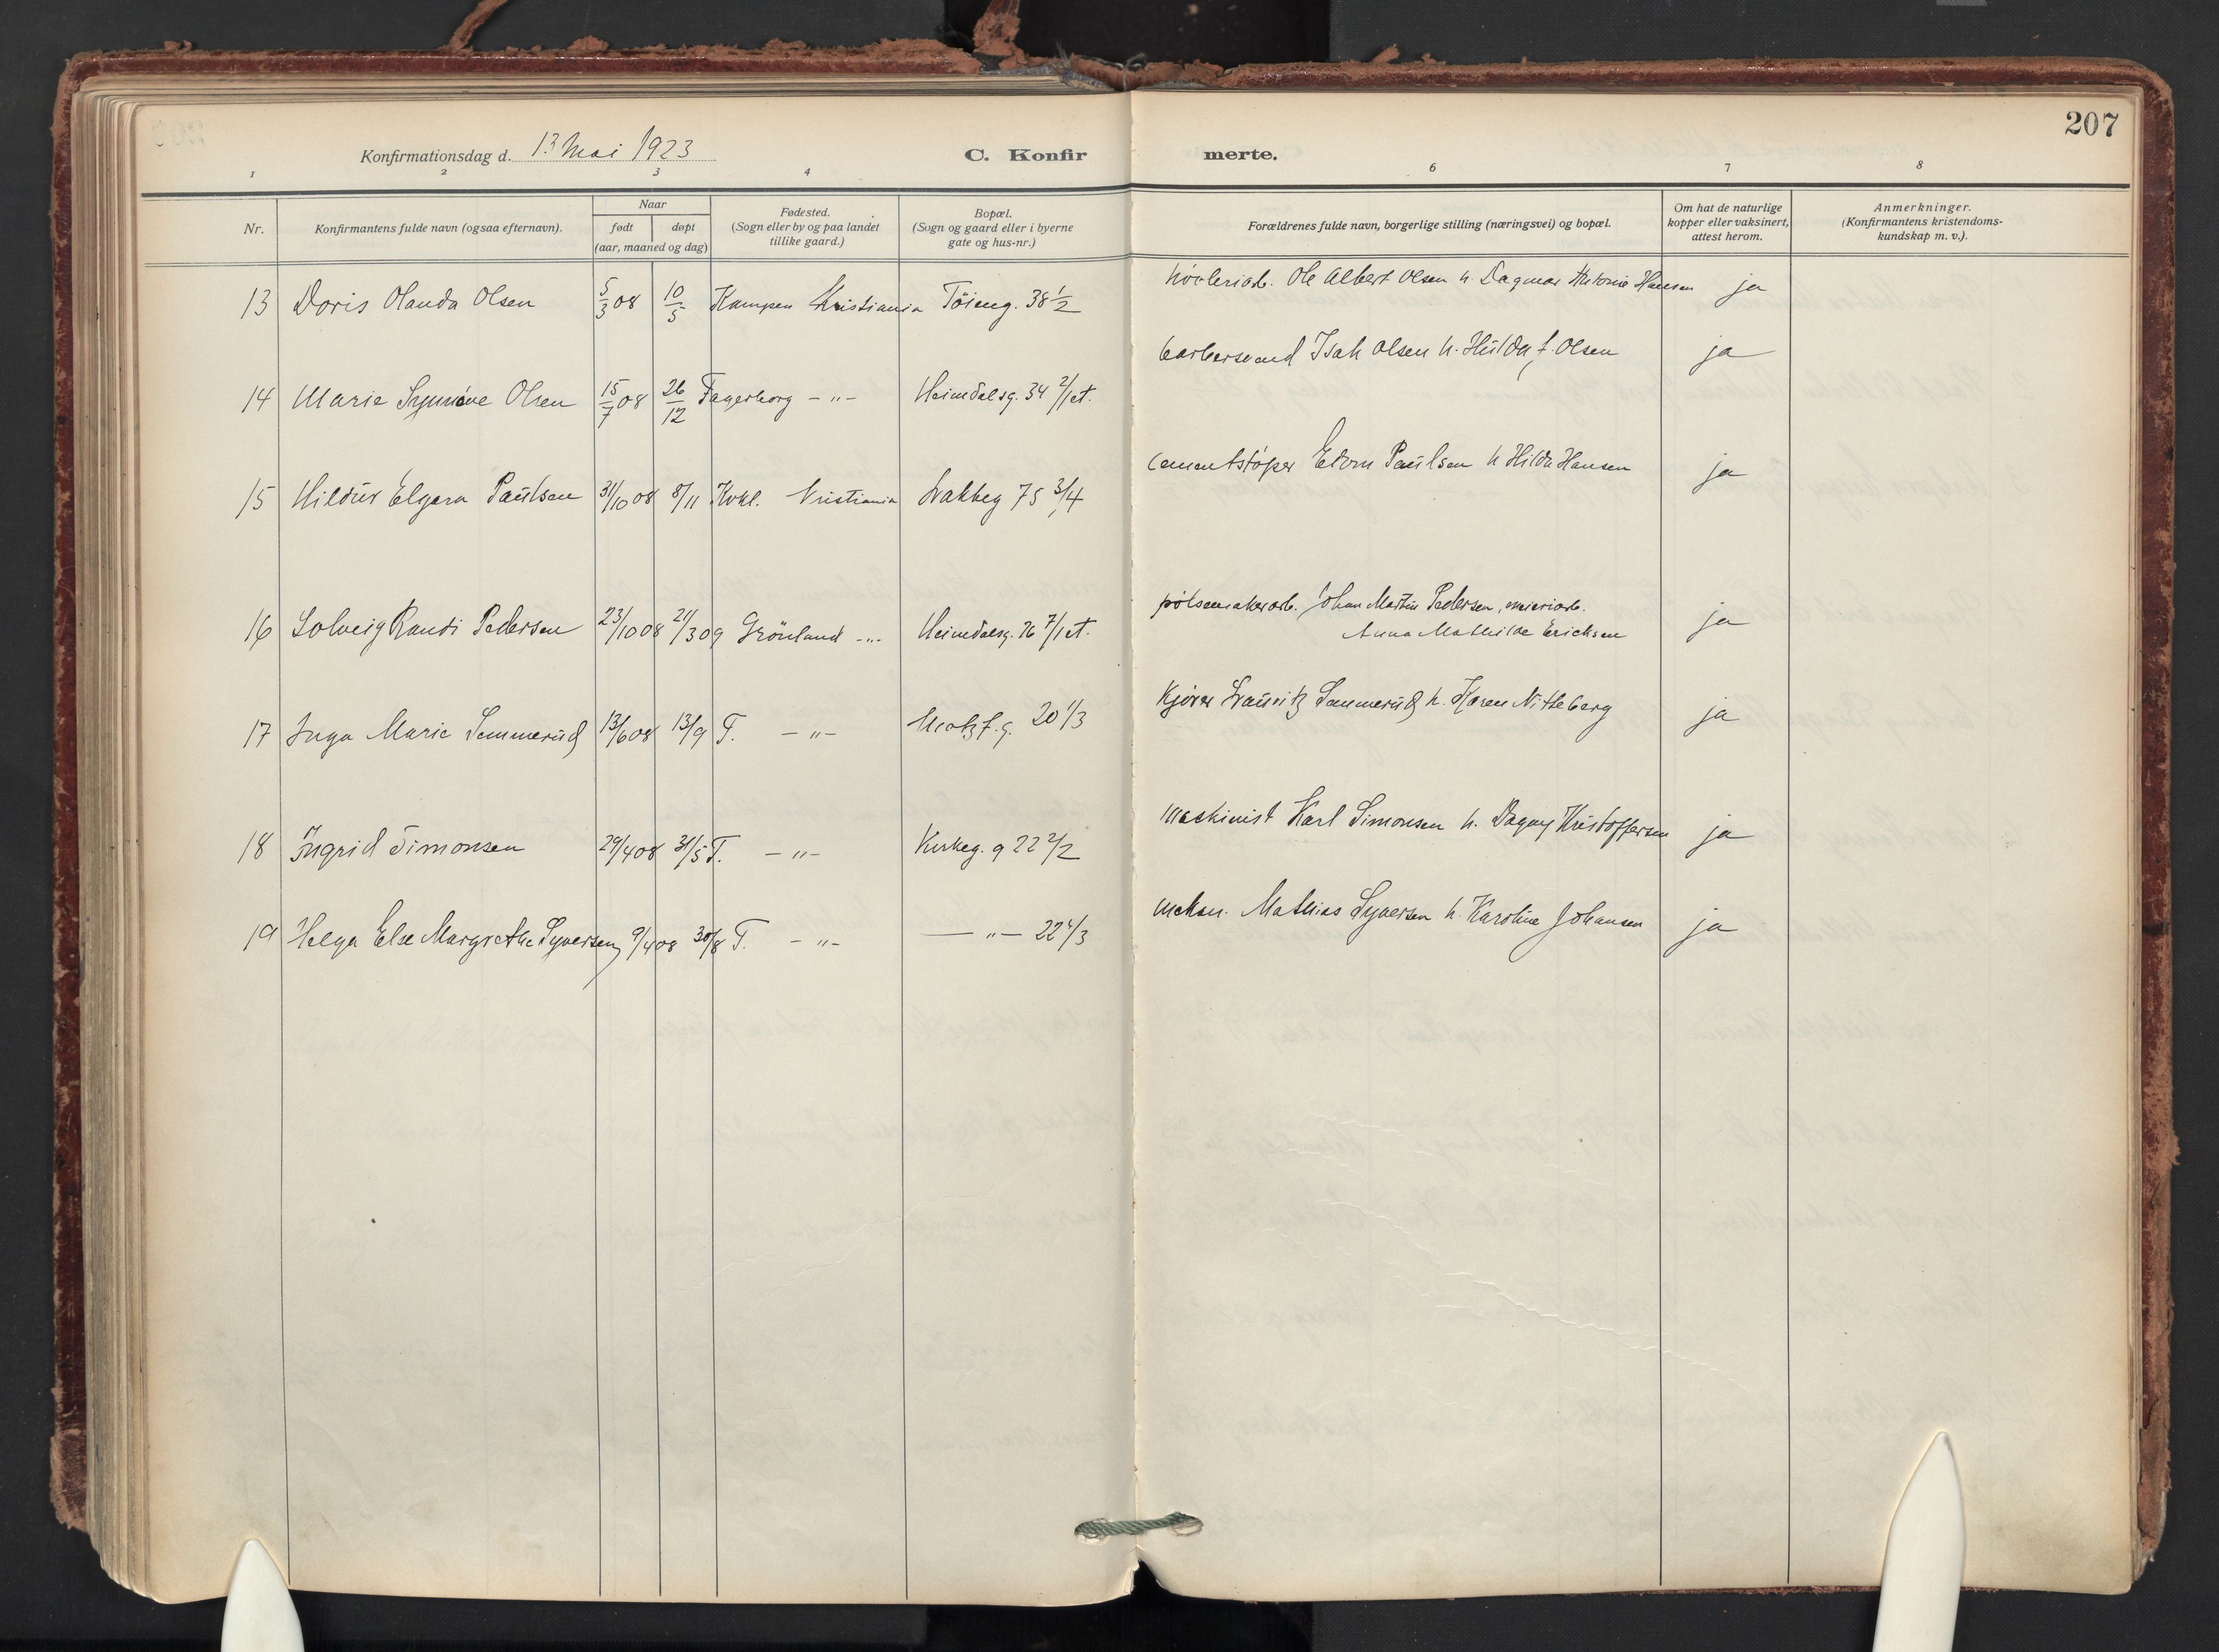 207
Konfirmationsdag d. 13 Mai 1923
C. Konfirmerte.
1 2 3 4 6 7 8
Nr.
Konfirmantens fulde navn (ogsaa efternavn).
Naar
født døpt
(aar, maaned og dag)
Fødested.
(Sogn eller by og paa landet
tillike gaard.)
Bopæl.
(Sogn og gaard eller i byerne
gate og hus-nr.)
Forældrenes fulde navn, borgerlige stilling (næringsvei) og bopæl.
Om hat de naturlige
kopper eller vaksinert,
attest herom.
Anmerkninger.
(Konfirmantens kristendoms-
kundskap m. v.).
13 Doris Olanda Olsen 5/3 08 10/5 Kampen Kristiania Töieng. 38 1/2 hövleriarb. Ole Albert Olsen h. Dagmar Antonie Hansen ja
14 Marie Synnöve Olsen 15/7 08 26/12 Fagerborg -"- Heimdalsg. 34 2/1 et. barbersvend Isak Olsen h. Hulda f. Olsen ja
15 Hildur Elgera Paulsen 31/10 08 8/11 Kvkl. Kristiania 75 3/4 cementstöper Edvin Paulsen h Hilda Hansen ja
16 Solveig Randi Pedersen 23/10 08 21/3 09 Grönland -"- Heimdalsg. 26 7/1 et. pölsemakerarb. Johan Martin Pedersen, meieriarb.
Anna Mathilde Ericksen ja
17 Inga Marie Sommerud 13/6 08 13/9 T. -"- Motzf.g. 20 1/3 Kjörer Lauritz Sommerud h. Karen Nitteberg ja
18 Ingrid Simonsen 29/4 08 31/5 T. -"- Kirkeg. 9 22 2/2 maskinist Karl Simonsen h. Dagny Kristoffersen ja
19 Helga Else Margrethe Syversen 9/4 08 30/8 T. -"- -"- 22 4/3 meksn. Mathias Syversen h. Karoline Johansen ja